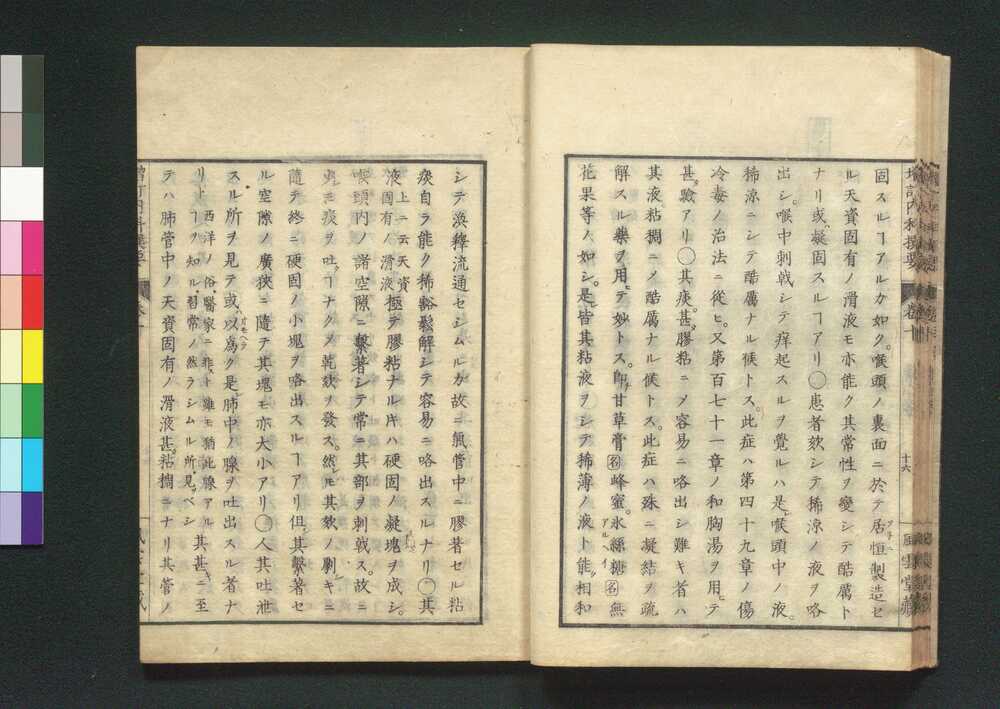 固スルヿアルカ如ク。喉頭ノ裏面ニ於テ居恒製造セ
ル天資固有ノ滑液モ亦能ク其常性ヲ變シテ酷厲ト
ナリ或凝固スルヿアリ◯患者欬シテ稀涼ノ液ヲ咯
出シ。喉中刺戟シテ痒起スルヲ覺ルハ是喉頭中ノ液。
稀涼ニシテ酷厲ナル候トス。此症ハ第四十九章ノ傷
冷毒ノ治法ニ從ヒ。又第百七十一章ノ和胸湯ヲ用テ
甚驗アリ◯其痰甚膠粘ニメ容易ニ咯出シ難キ者ハ
其液粘稠ニメ酷厲ナル候トス。此症ハ殊ニ凝結ヲ疏
解スル藥ヲ用テ妙トス。即甘草膏名蜂蜜。氷糖名無
花果等ノ如シ。是皆其粘液ヲシテ稀薄ノ液ト能相和
シテ渙釋流通セシムルカ故ニ氣管中ニ膠著セル粘
痰自ラ能ク稀豁鬆解シテ容易ニ咯出スルナリ◯其
液上ニ云天資固有ノ滑液極テ膠粘ナル片ハ硬固ノ凝塊ヲ成シ。
喉頭内ノ諸空隙ニ繋著シテ常ニ其部ヲ刺戟ス。故ニ
更ニ痰ヲ吐ヿナクメ乾欬ヲ發ス。然𪜈其欬ノ劇キニ
隨テ終ニ硬固ノ小塊ヲ咯出スルヿアリ。但其繋著セ
ル空隙ノ廣狹ニ隨テ其塊モ亦大小アリ◯人其吐泄
スル所ヲ見テ或以爲ク是肺中ノ腺ヲ吐出スル者ナ
リト西洋ノ俗醫家ニ非ト雖モ猶此腺アルヿヲ知ル習常ノ然ラシムル所見ベシ其甚ニ至
テハ肺管中ノ天資固有ノ滑液甚粘稠ニナリ其管ノ
卷十
十六
風雲堂藏